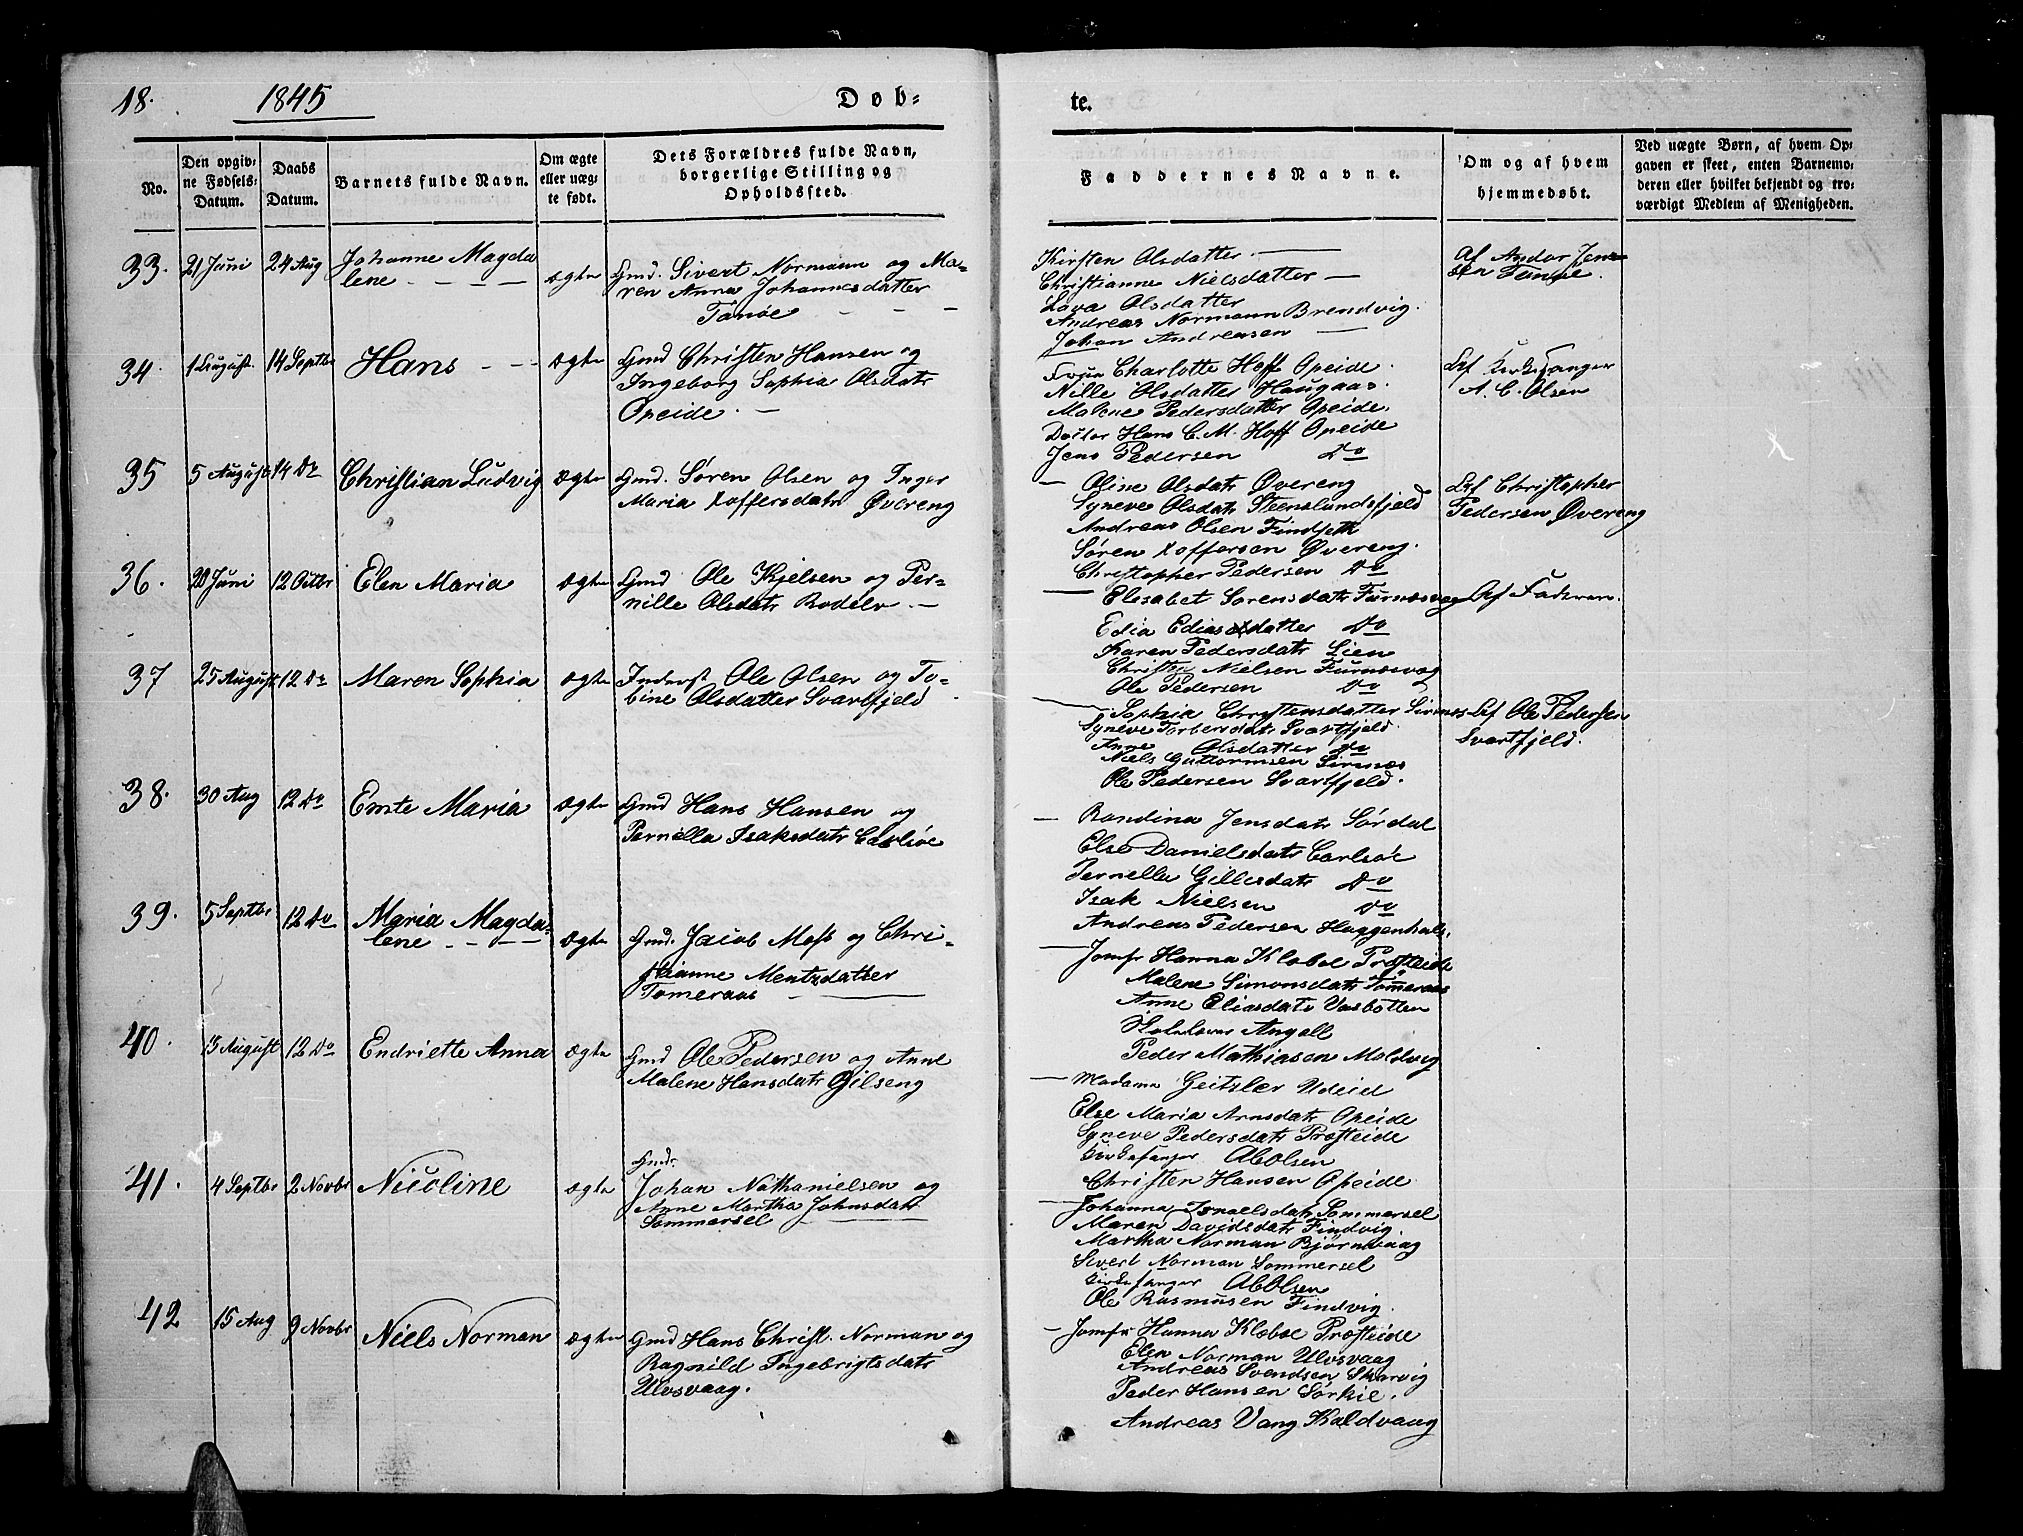 18.
1845
Døb=
te.
No.
Den opgiv=
ne Fødsels=
Datum.
Daabs
Datum.
Barnets fulde Navn.
Om ægte
eller uæg=
te født.
Dets Forældres fulde Navn,
borgerlige Stilling og
Opholdssted.
Faddernes Navne.
Om og af hvem
hjemmedøbt.
Ved uægte Børn, af hvem Op=
gaven er skeet, enten Barnemo=
deren eller hvilket bekjendt og tro=
værdigt Medlem af Menigheden.
33.
21 Juni
24 Aug
Johanne Magda
lene
ægte
Gmd. Sivert Normann og Ma=
ren Anna Johannesdatter
Tanøe
Kirsten Olsdatter
Christianne Nielsdatter
Lava Olsdatter
Andreas Normann Brendvig.
Johan Andreasen
Af Andor Jen=
sen
34.
1 August.
14 Septbr
Hans
ægte
Gmd Christen Hansen og
Ingeborg Sophia Olsdatr
Opeide.
Frue Charlotte Hoff Opeide.
Nille Olsdatter Haugaas.
Malene Pedersdatter Opeide.
Doctor Hans C. M. Hoff Opeide
Jens Pedersen Do
Af Kirkesanger
A. C. Olsen
35
5 August
14 Do
Christian Ludvig
ægte
Gmd. Søren Olsen og Inger
Maria Xoffersdatr Øvereng
Oline Olsdatr Øvereng
Syneve Olsdatr Steenslundsfjeld
Andreas Olsen Findseth
Søren Xoffersen Øvereng.
Christopher Pedersen Do
Af Christopher
Pedersen Øvereng
36.
20 Juni
12 Octbr
Elen Maria
ægte
Gmd Ole Kjelsen og Per=
nille Olsdatr Rodelv.
Elisabet Sørensdatr Furnæsvag
Edia Ediasdatter Do
Karen Pedersdatr Lien
Christen Nielsen Furnæsvag
Ole Pedersen Do
Af Faderen.
37
25 August
12 Do
Maren Sophia
ægte
Inderst Ole Olsen og To=
bine Olsdatter Svartfjeld
Sophia Christensdatter Sirnæs
Syneve Torbersdatr Svartfjeld.
Anne Olsdatter Do
Niels Guttormsen Sirnæs
Ole Pedersen Svartfjeld.
Af Ole Pedersen
Svartfjeld.
38.
30 Aug
12 Do
Emte Maria
ægte
Gmd Hans Hansen og
Pernella Isaksdatr Carlsøe
Randina Jensdatr Sørdal
Else Danielsdatr Carlsøe
Pernella Gillesdatr Do
Isak Nielsen Do
Andreas Pedersen Haggenhals.
39.
5 Septbr
12 Do
Maria Magda=
lene
ægte
Gmd. Jacob Moss og Chri=
stianne Mentzdatter
Tømeraas
Jomfr Hanna Klæboe Præsteide
Malene Simonsdatr Tømeraas
Anne Eliasdatr Vasbotten
Angell
Peder Mathiasen Moldvig
40.
13 August
12 Do
Endriette Anna
ægte
Gmd Ole Pedersen og Anne
Malene Hansdatr Gilseng
Madame Geitzler Udeid
Else Maria Arnsdatr Opeide
Syneve Pedersdatr Præsteide
Kirkesanger AC Olsen
Christen Hansen Opeide.
41.
4 Septbr
2 Novbr
Nicoline
ægte
Gmd.
Johan Nathanielsen og
Anne Martha Johnsdatr
Sommersel
Johanna Israelsdatr Sommersel
Maren Davidsdatr Findvig.
Martha Norman Bjørnvaag
Sivert Norman Sommersel
Kirkesanger AC Olsen
Ole Rasmusen Findvig.
42
15 Aug
9 Novbr
Niels Norman
ægte
Gmd Hans Christ. Norman og
Ragnild Ingebrigtsdatr
Ulvsvaag.
Jomfr Hanna Klæboe Præsteide
Elen Norman Ulvsvaag
Andreas Svendsen Skarvig
Peder Hansen Sørkie.
Andreas Vang Kaldvaag